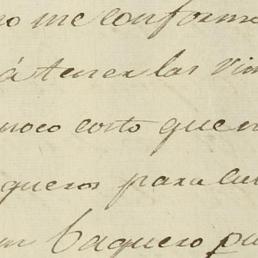 no me conforma
á tener las vin
poco costo que n
queros para cu
un Baquero pu